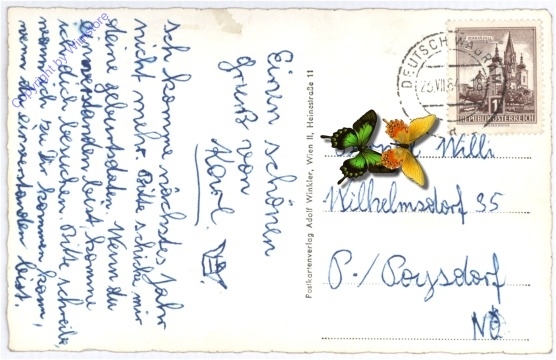 Einen schönen
Gruß von
Karl.
Ich komme nächstes Jahr
nicht mehr. Bitte schicke mir
deine geburtsdatum. Wenn du
einverstanden bist, komme
ich dich besuchen. Bitte schreibe,
wann ich zu dir kommen kann,
wenn du einverstanden bist.
Copyright by
Postkartenverlag Adolf Winkler, Wien II, Heinestraße 11
DEUTSCH WAGRAM
REPUBLIK ÖSTERREICH
Willi
Wilhelmsdorf 35
P./Poysdorf
NÖ